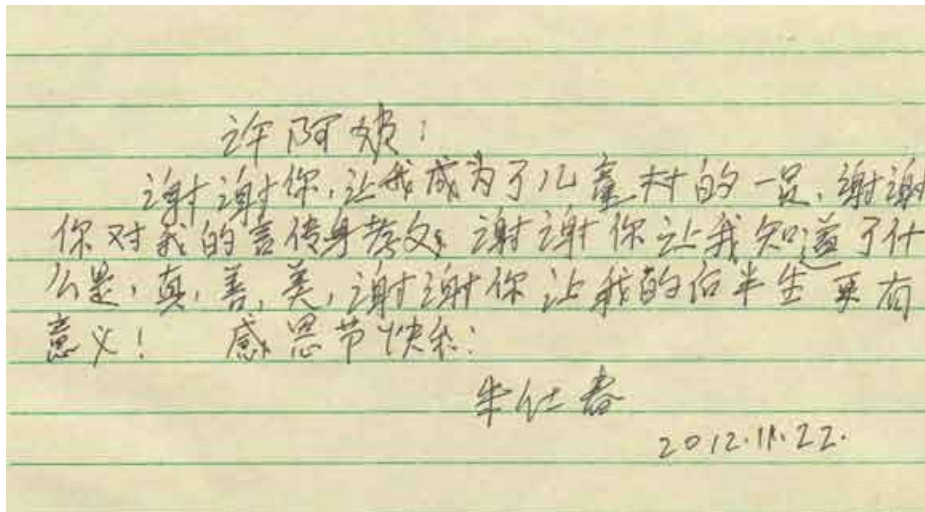 许阿姨:
谢谢你,让我成为了儿童村的一员,谢谢
你对我的言传身教,谢谢你让我知道了什
么是,真,善,美,谢谢你让我的后半生更有
意义! 感恩节快乐:
朱仕春
2012.11.22.